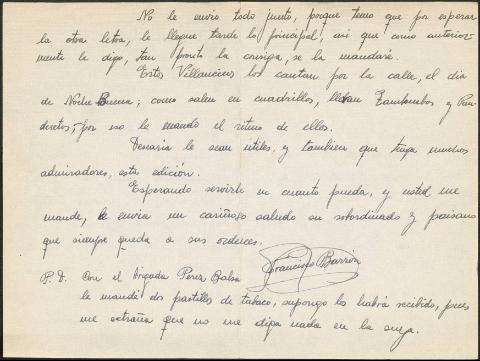 No le envio todo junto, porque temo que por esperar
la otra letra, le llegue tarde lo principal, asi que como anterior-
mente le digo, tan pronto la consiga, se la mandaré.
Estos Villancicos los cantan por la calle, el dia
de Noche Buena; como salen en cuadrillas, llevan Zambombas y Pan-
deretas, por eso le mando el ritmo de ellos.
Desearia le sean útiles, y tambien que tenga muchos
admiradores, esta edición.
Esperando servirle en cuanto pueda, y usted me
mande, le envia un cariñoso saludo su subordinado y paisano
que siempre queda a sus ordenes.
Francisco Barrón
P. D. Con el brigada Perez Balsa
le mandé dos pastillas de tabaco, supongo las habrá recibido, pues
me extraña que no me diga nada en la suya.